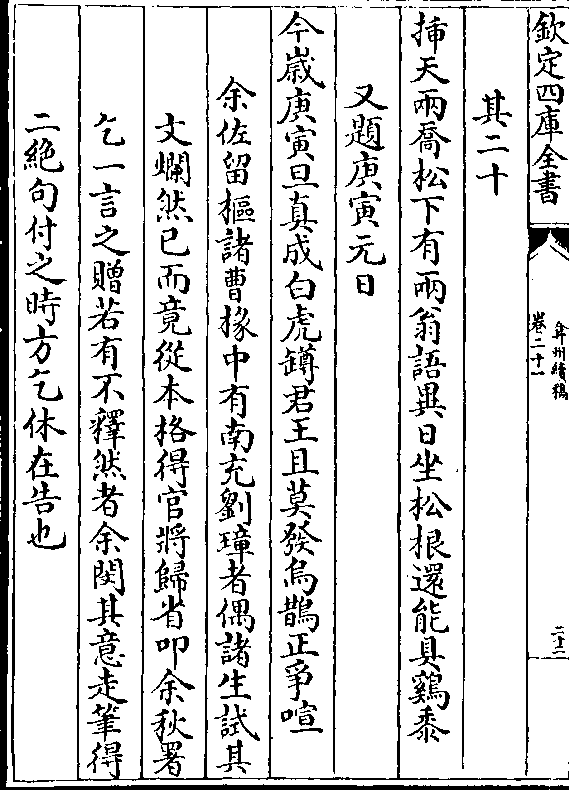 欽定四庫全書
弇州續稿
卷二十一
二十二
其二十
揷天兩喬松下有兩翁語異日坐松根還能具鷄黍
又題庚寅元日
今嵗庚寅旦真成白虎罇君王且莫發烏鵲正爭喧
余佐留樞諸曹掾中有南充劉璋者偶諸生試其
文爛然已而竟從本格得官將歸省叩余秋署
乞一言之贈若有不釋然者余閔其意走筆得
二絶句付之時方乞休在告也